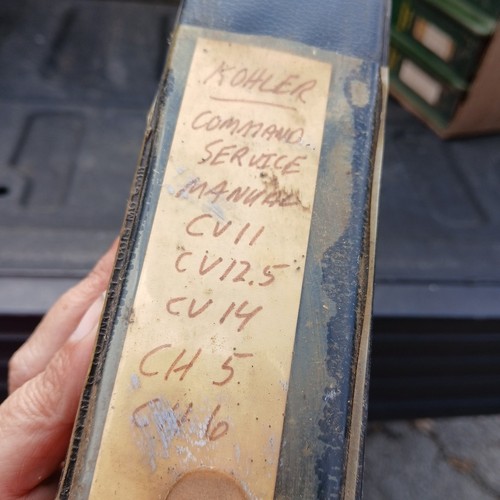 KOHLER
COMMAND
SERVICE
MANUAL
CV11
CV12.5
CV14
CH 5
CH 6